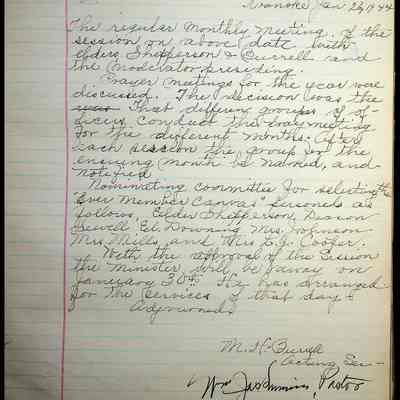 Roanoke Jan 26 1944
The regular monthly meeting of the
session on above date with
elders Shepperson & Burrell and
the Moderator presiding.
Prayer meetings for the year were
discussed. The decision was the
year That different groups of of-
ficers conduct the prayer meeting
for the different months. After
each session the group for the
ensuing month be named, and
notified
Nominating committee for selecting the
"Ever Member Canvas" personed as
follows, Elder Shepperson, Deacon
Jewell El. Downing Mrs. Johnson
Mrs. Mills and Mrs. L.J. Cooper.
With the approval of the Session
the minister will be away on
January 30th. He has arranged
for the services of that day.
Adjourned.
M. H. Burrell
Acting Sec-
Wm Simmons, Pastor